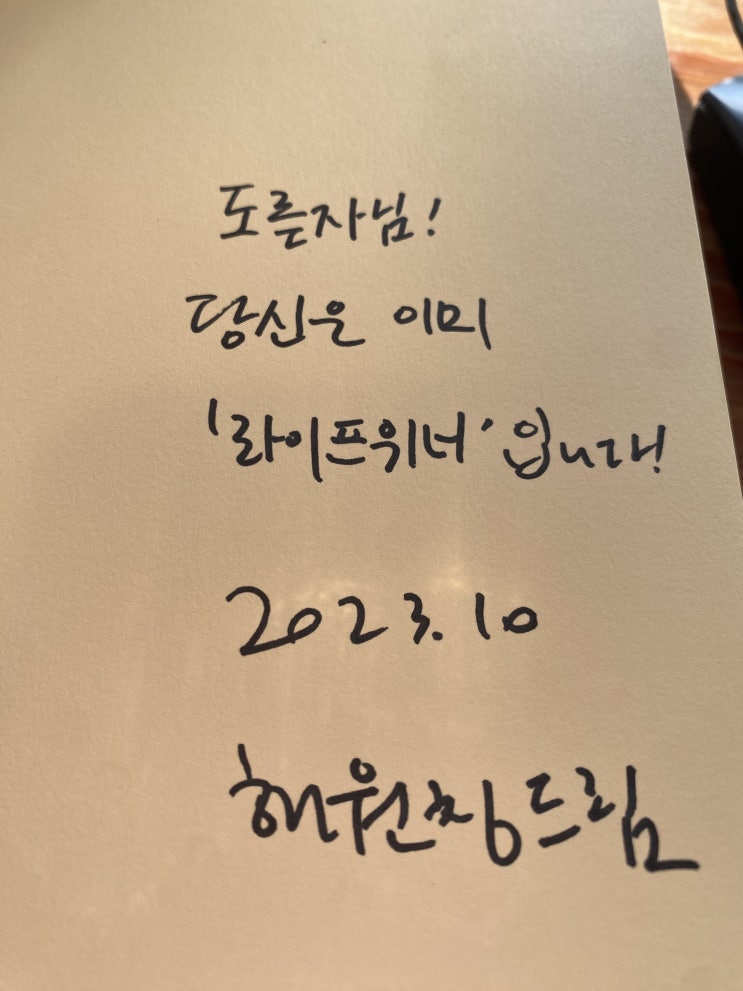 도른자님!
당신은 이미
'라이프위너'입니다!
2023.10
해원칭드림